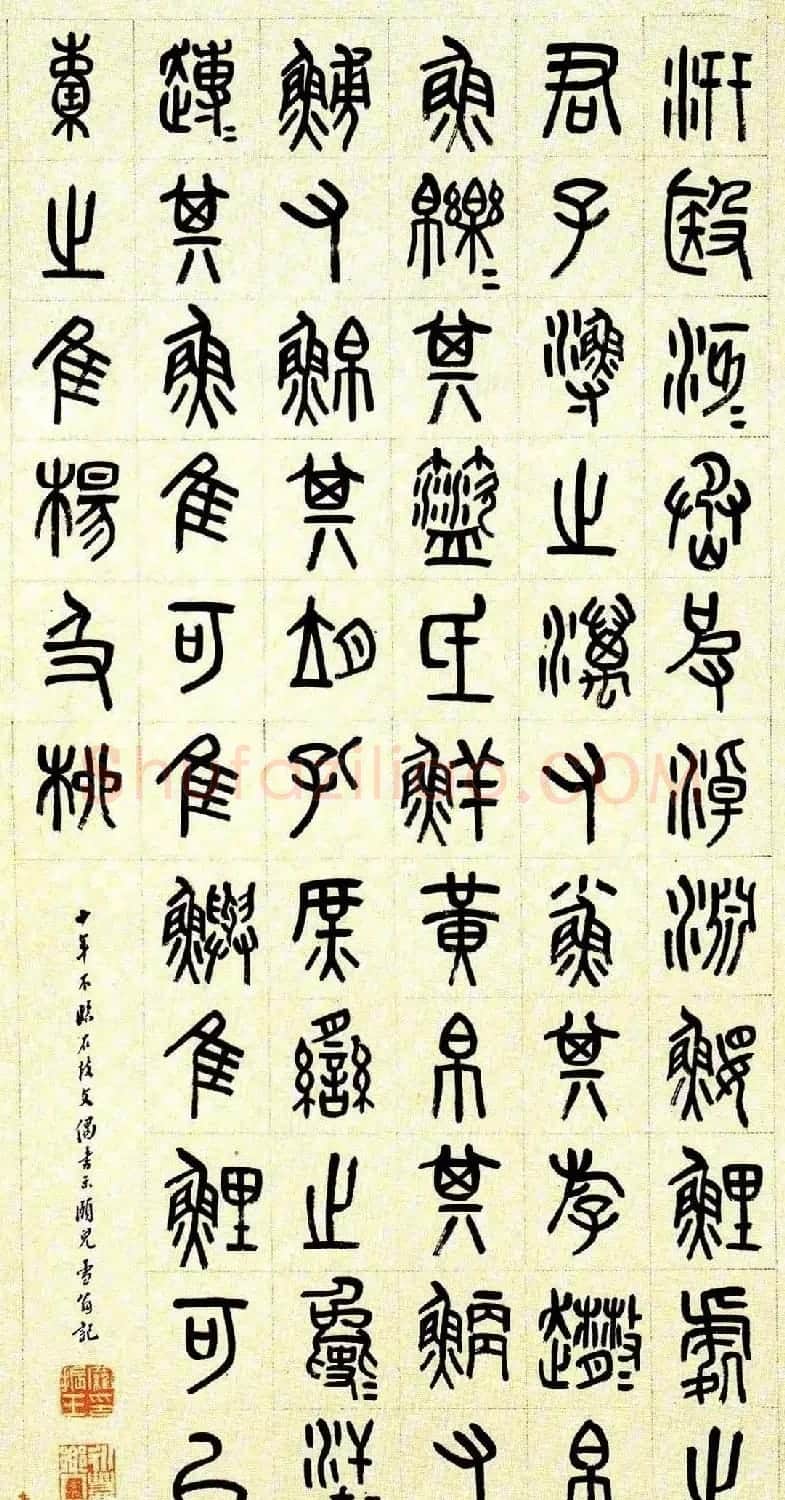 汧殹沔〻丞皮淖淵鰋鯉處之
君子漁之澫又小魚其斿趣〻帛
魚皪〻其盜氐鮮黃帛其鯿又
又鮊其胡孔庶臠之夐〻汗
其魚隹可隹鱮隹鯉可以
橐之隹楊及柳
十年不臨石鼓文偶書示頤兒雪翁記
Shufaziliao.COM